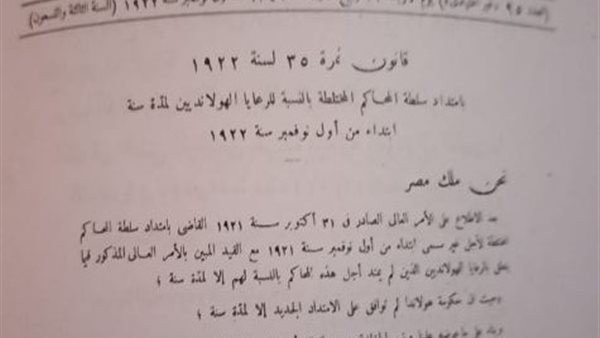 (عدد ٩٥
١٩٢٢ (السنة الثالثة والتسعون)
قانون نمرة ٣٥ لسنة ١٩٢٢
بامتداد سلطة المحاكم المختلطة بالنسبة للرعايا الهولانديين لمدّة سنة
ابتداء من أول نوفمبر سنة ١٩٢٢
نحن ملك مصر
بعد الاطلاع على الأمر العالى الصادر فى ٣١ أكتوبر سنة ١٩٢١ القاضى بامتداد سلطة المحاكم
المختلطة لأجل غير مسمى ابتداء من أول نوفمبر سنة ١٩٢١ مع القيد المبين بالأمر العالى المذكور فيما
يتعلق بالرعايا الهولانديين الذين لم يمتد أجل هذه المحاكم بالنسبة لهم إلا لمدّة سنة ؛
وحيث ان حكومة هولاندا لم توافق على الامتداد الجديد إلا لمدّة سنة ؛
وبناء على ما عرضه علينا